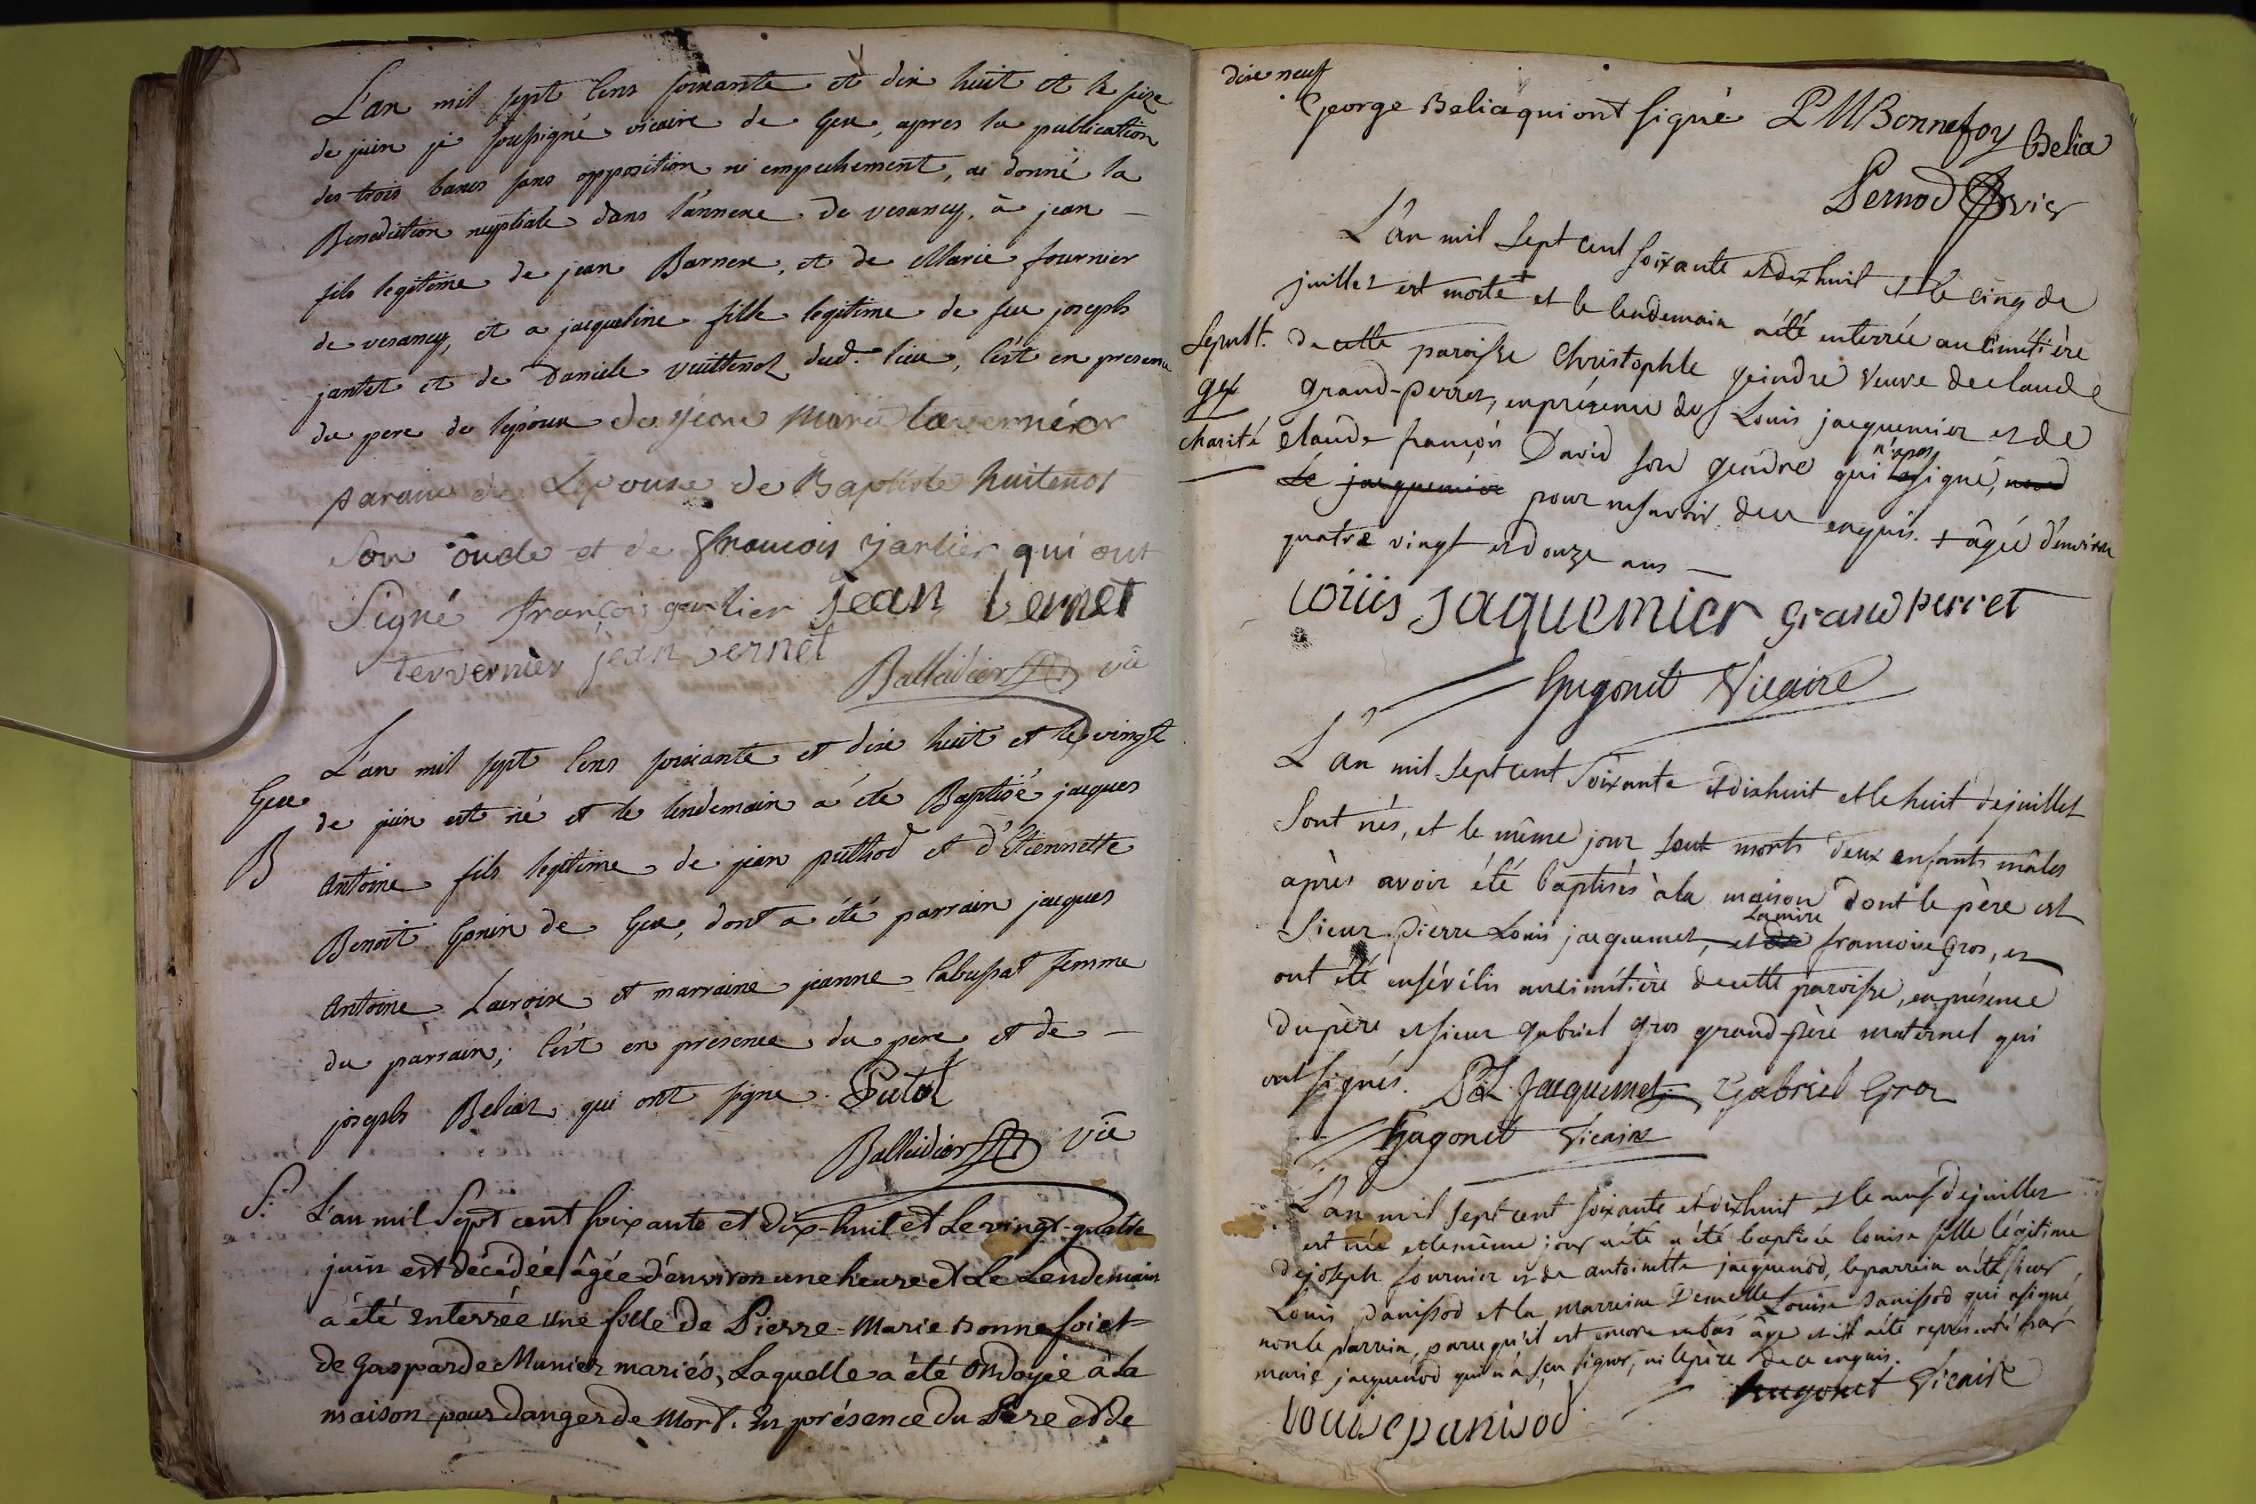 L'an mil sept cens soixante et dix huit et le seize
de juin je soussigné vicaire de Gex, apres la publication
des trois bancs sans opposition ni empechement, ai donné la
Benediction nuptiale dans l'annexe de vesancy, à jean
fils legitime de jean Barnex, et de Marie fournier
de vesancy, et a jacqueline fille legitime de feu joseph
jantet et de Daniele vuittenot dud. lieu, c'est en presence
du pere de lepoux de jean Marie tavernier
parain de Lepouse de Baptiste huitenot
Son oncle et de francois jarlier qui ont
Signé françois garlier jean Bernet
tervernier jean Bernet
Balleidier vic
L'an mil sept cens soixante et dix huit et le vingt
Gex de juin est né et le lendemain a été Baptisé jacques
B Antoine fils legitime de jean puthod et d'Etiennette
Benoit Gonin de Gex, dont a été parrain jacques
Antoine Lacroix et marraine jeanne labussat femme
du parrain; c'est en presence du pere et de
joseph Beliaz qui ont signe. Putot
Balleidier vic
S: L'an mil Sept cent soixante et dix-huit et Le vingt-quatre
juin est décédée âgée d'environ une heure et Le Lendemain
a été enterrée une fille de Pierre-Marie Bonnefoi et
de Gasparde Munier mariés, Laquelle a été ondoyée à la
maison pour danger de Mort. En présence du Pere et de
dix neuf
George Belia qui ont signé P M Bonnefoy Belia
Pernod
L'an mil Sept cent soixante et dix huit et le cinq de
juillet est morte + et le lendemain a été enterrée au cimétière
Sepult. de cette paroisse Christophle geindre veuve de claude
gex Grand-perret, en présence de Louis jacquemier et de
charité claude françois David son gendre qui n'a pas signé,
Le jacquemier pour ne savoir de ce enquis. + âgée d'environ
quatre vingt et douze ans
Loüis Jaquemier Grand perret
Hugonet Vicaire
L'an mil Sept cent Soixante et dix huit et le huit de juillet
Sont nés, et le même jour sont morts deux enfants mâles
après avoir été baptisés à la maison dont le père est
la mère
Sieur Pierre Louis jacquemet, et francoise Gros, et
ont été ensévélis au cimétière de cette paroisse, en présence
du père et sieur gabriel gros grand-père maternel qui
ont signés. P L Jacquemet Gabriel Gros
Hugonet Vicaire
L'an mil sept cent soixante et dix huit et le neuf de juillet
est née et le même jour a été a été baptisée louise fille légitime
de joseph fournier et de antoinette jacquenod, le parrein a été sieur
Louis panissod et la marreine Demelle Louise panissod qui a signé
non le parrein, parce qu'il est encore en bas âge et il a été représenté par
marie jacquenod qui n'a sçu signer, ni le père de ce enquis.
Hugonet Vicaire
Louise panisod